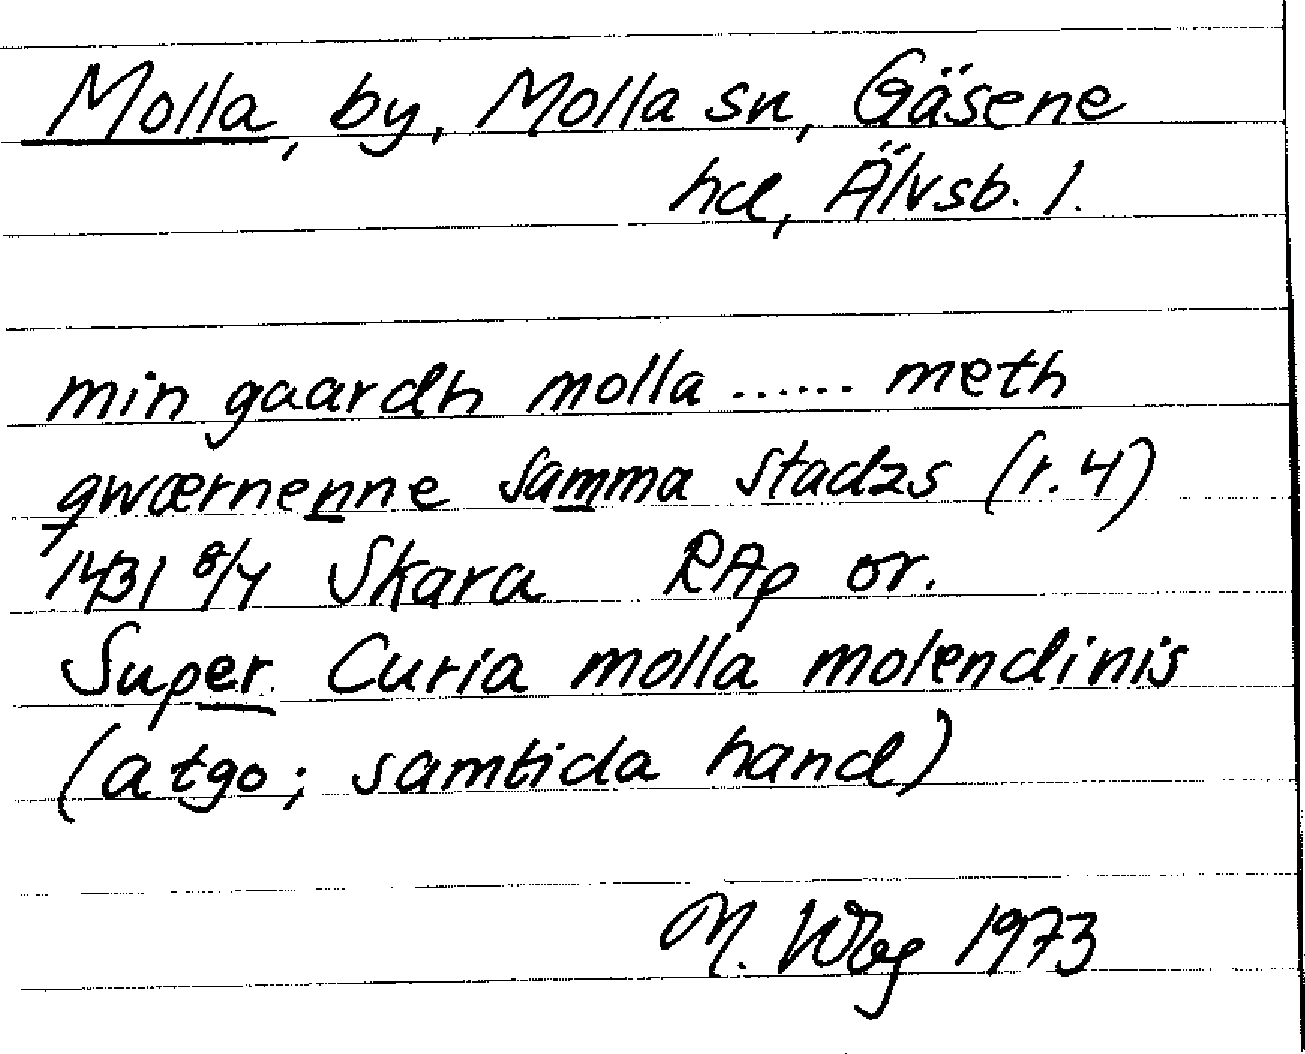 Molla, by, Molla sn, Gäsene
hd, Älvsb. l.
min gaardh molla ...... meth
qwærnenne samma stadzs (r. 4)
1431 8/4 Skara RAp or.
Super Curia molla molendinis
(atgo; samtida hand)
M. 1973